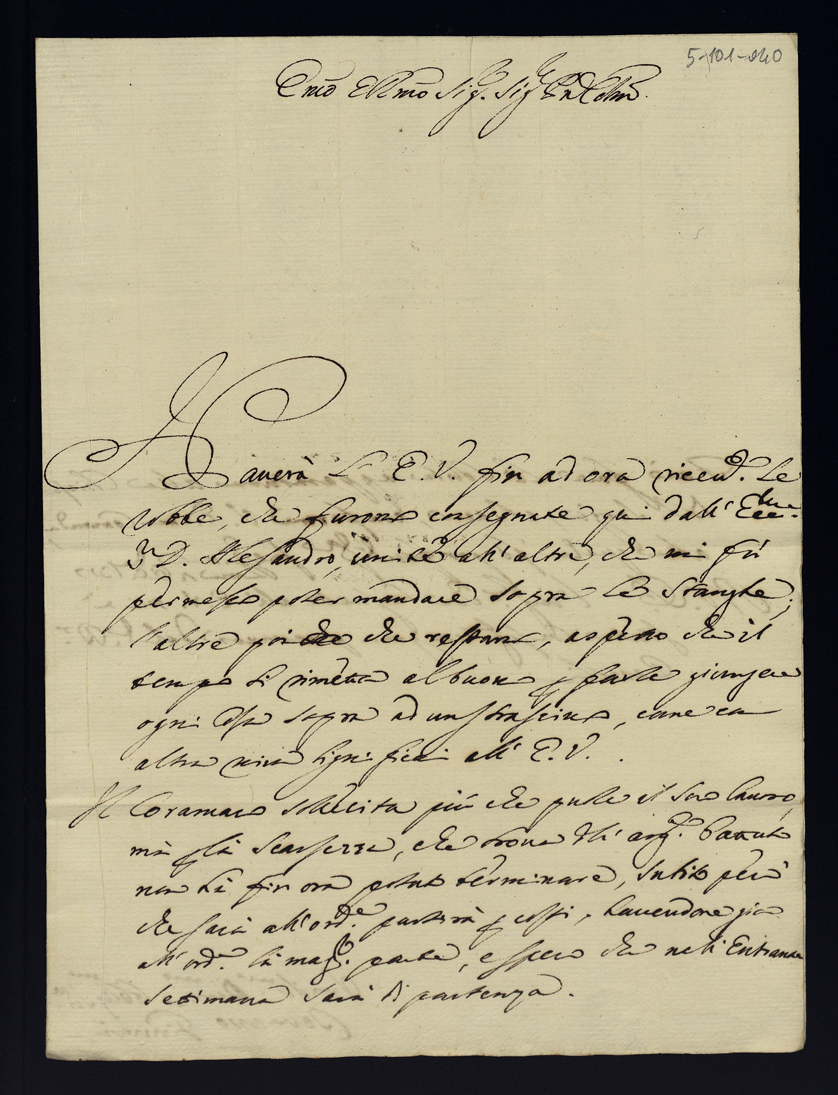 5-101-040
Em̃o e Rm̃o Sig.r Sig.r P.ron Colm̃o
Haverà l' E. V. fin ad ora ricevu.to le
robbe, che furono consegnate qui dall' Ecc.mo
D. Alesandro, unite all' altre, che mi fù
permesso poter mandare sopra le Stanghe;
l'altre poi che restano, aspetto che il
tempo si rimetta al buono p farle giungere
ogni cosa sopra ad un strascino, come con
altra mia significai all' E. V.
Il Coramaro sollecita più che puole il suo lavoro,
mà p la scarsezza, che trova dell' arg.to battuto
non hà fin ora potuto terminare, subito però
che sarà all' ord.e partirà p costì, havendone già
all' ord.e la magg.r parte, e spero che nell' entrante
settimana sarà di partenza.